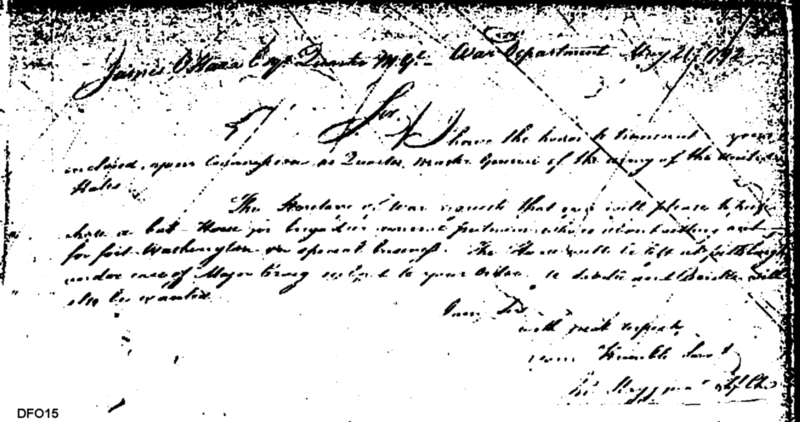 James O Hara Esqr. Quarter M. Gl. War Department May 21 1792
Sir
I have the honor to transmit you
enclosed, your Commission as Quarter Master General of the army of the United
States
The Secretary of War requests that you will please to
a bat-Horse for brigadier general Putnam who is about setting out
for fort Washington on special business. The Horse will be left at pittsburgh
under care of Major Craig subject to your order. A saddle and bridle will
also be wanted.
I am Sir
with great respect
your Humble Servt
DFO15